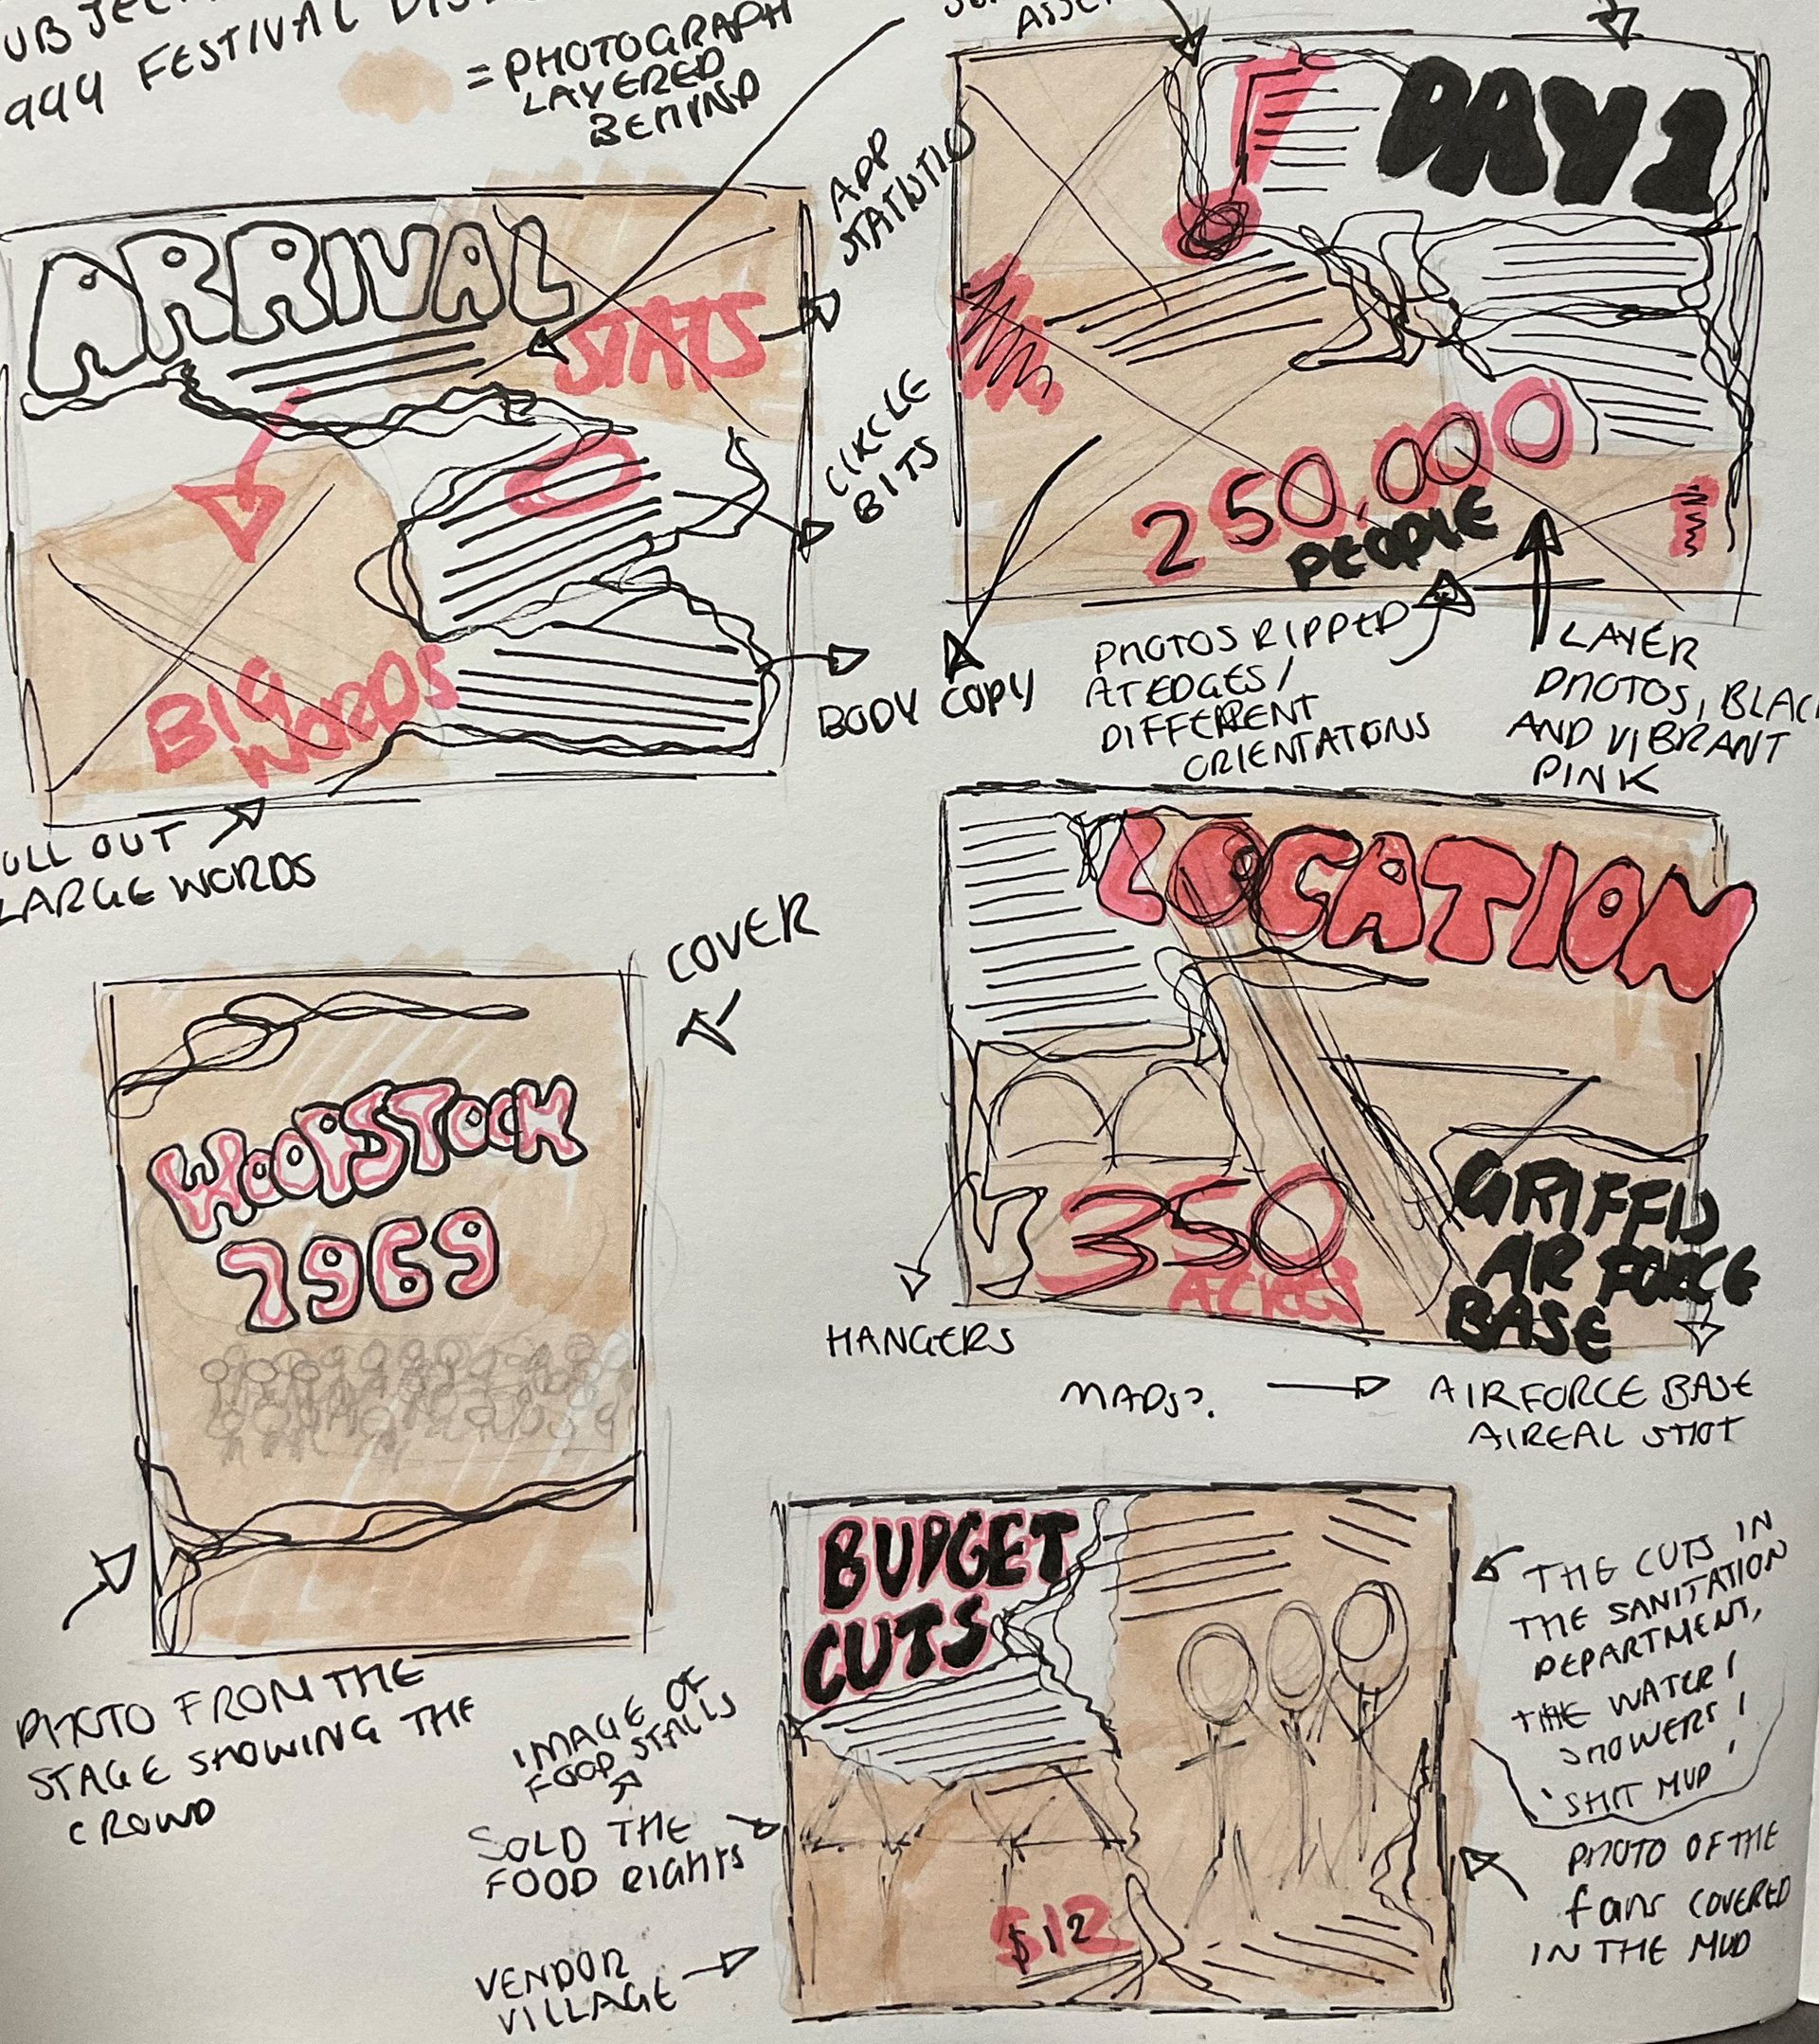 UBJEC
999 FESTIVAL DIS
= PHOTOGRAPH
LAYERED
BEHIND
ASSE
ARRIVAL
STATS
BIG
WORDS
CIRCLE
BITS
BODY COPY
ULL OUT
LARGE WORDS
DAY 1
!
250,000
PEOPLE
PHOTOS RIPPED
AT EDGES /
DIFFERENT
ORIENTATIONS
LAYER
PHOTOS, BLAC
AND VIBRANT
PINK
COVER
WOODSTOCK
1969
PHOTO FROM THE
STAGE SHOWING THE
CROWD
LOCATION
350
ACRES
GRIFFIS
AIR FORCE
BASE
HANGERS
MAPS?
AIRFORCE BASE
AIREAL SHOT
BUDGET
CUTS
$12
IMAGE OF
FOOD STALLS
SOLD THE
FOOD RIGHTS
VENDOR
VILLAGE
THE CUTS IN
THE SANITATION
DEPARTMENT,
THE WATER /
SHOWERS /
'SHIT MUD'
PHOTO OF THE
fans COVERED
IN THE MUD